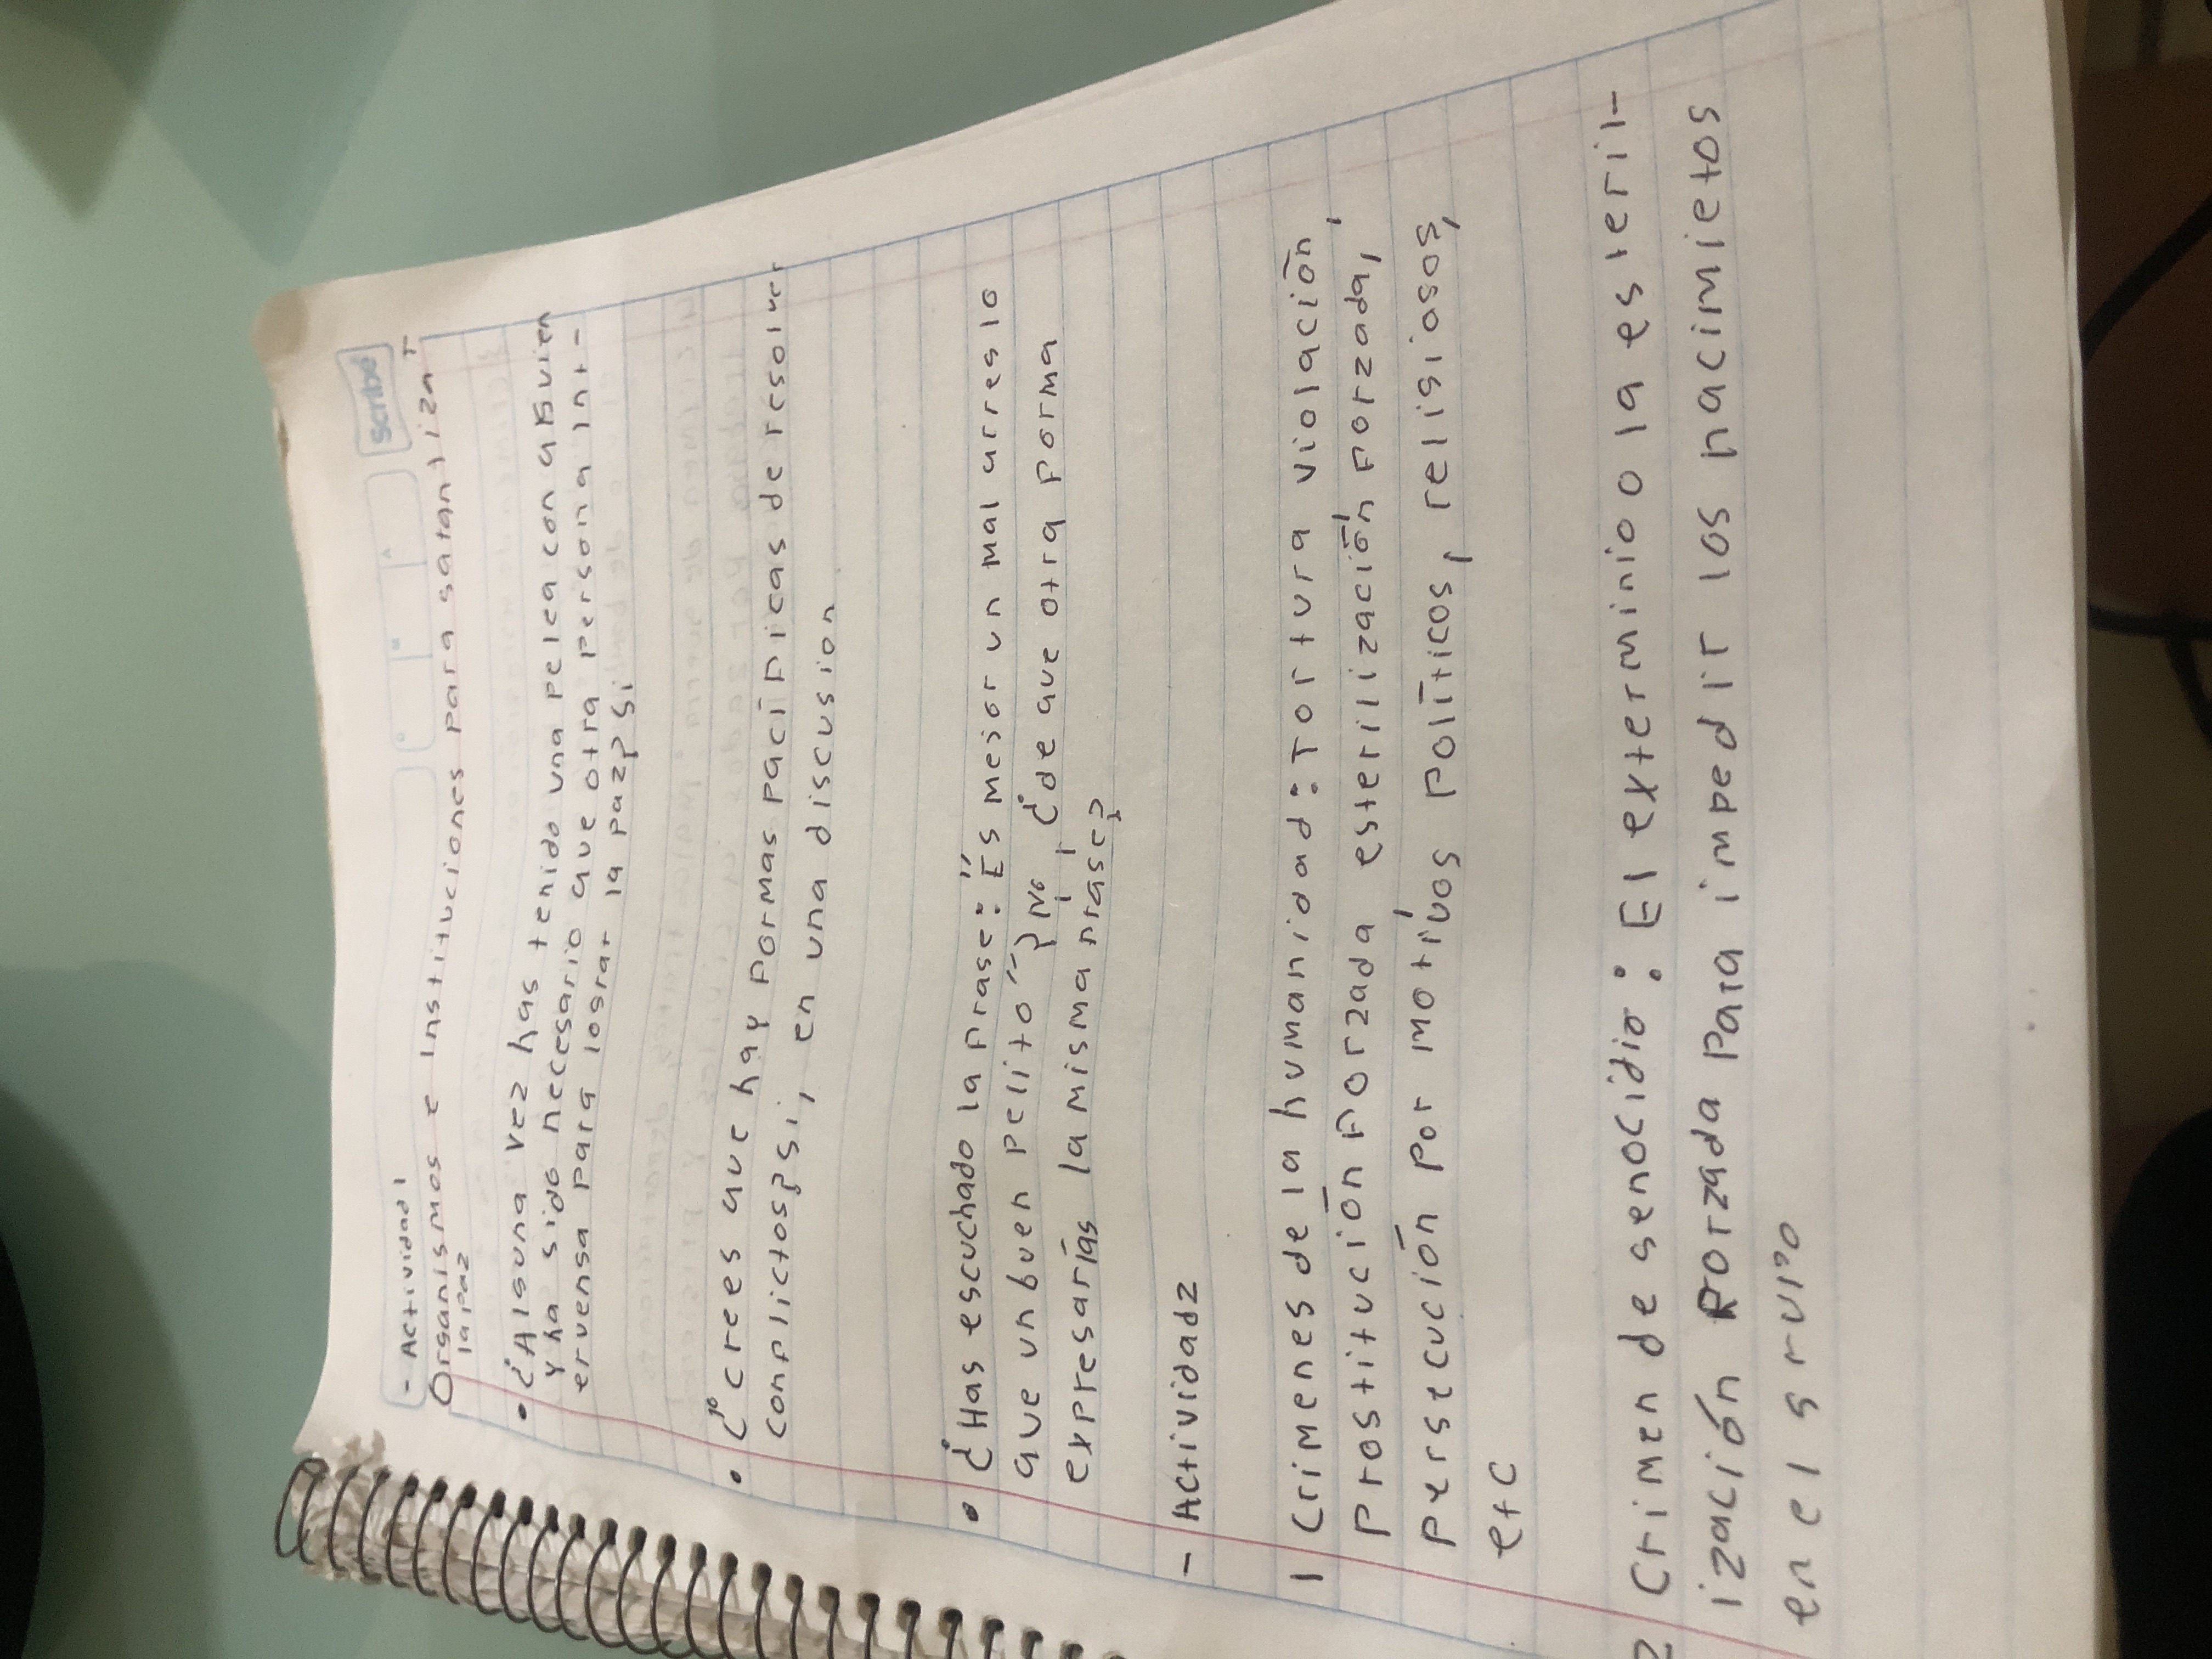 Scribe
- Actividad 1
Organismos e Instituciones para garantizar
la paz
• ¿Alguna vez has tenido una pelea con alguien
y ha sido necesario que otra persona int-
ervenga para lograr la paz? Si
• ¿crees que hay formas pacíficas de resolver
conflictos? si, en una discusion
• ¿Has escuchado la frase: "Es mejor un mal arreglo
que un buen pelito"? No, ¿de que otra forma
expresarías la misma frase?
- Actividad 2
1 Crimenes de la humanidad: Tortura violación,
Prostitución Forzada esterilización forzada,
persecución por motivos políticos, religiosos,
etc
2 Crimen de genocidio: El exterminio o la esteril-
ización Forzada para impedir los nacimietos
en el grupo